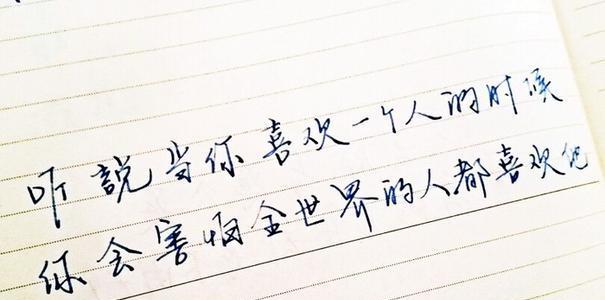 听說当你喜欢一个人的时候
你会害怕全世界的人都喜欢他